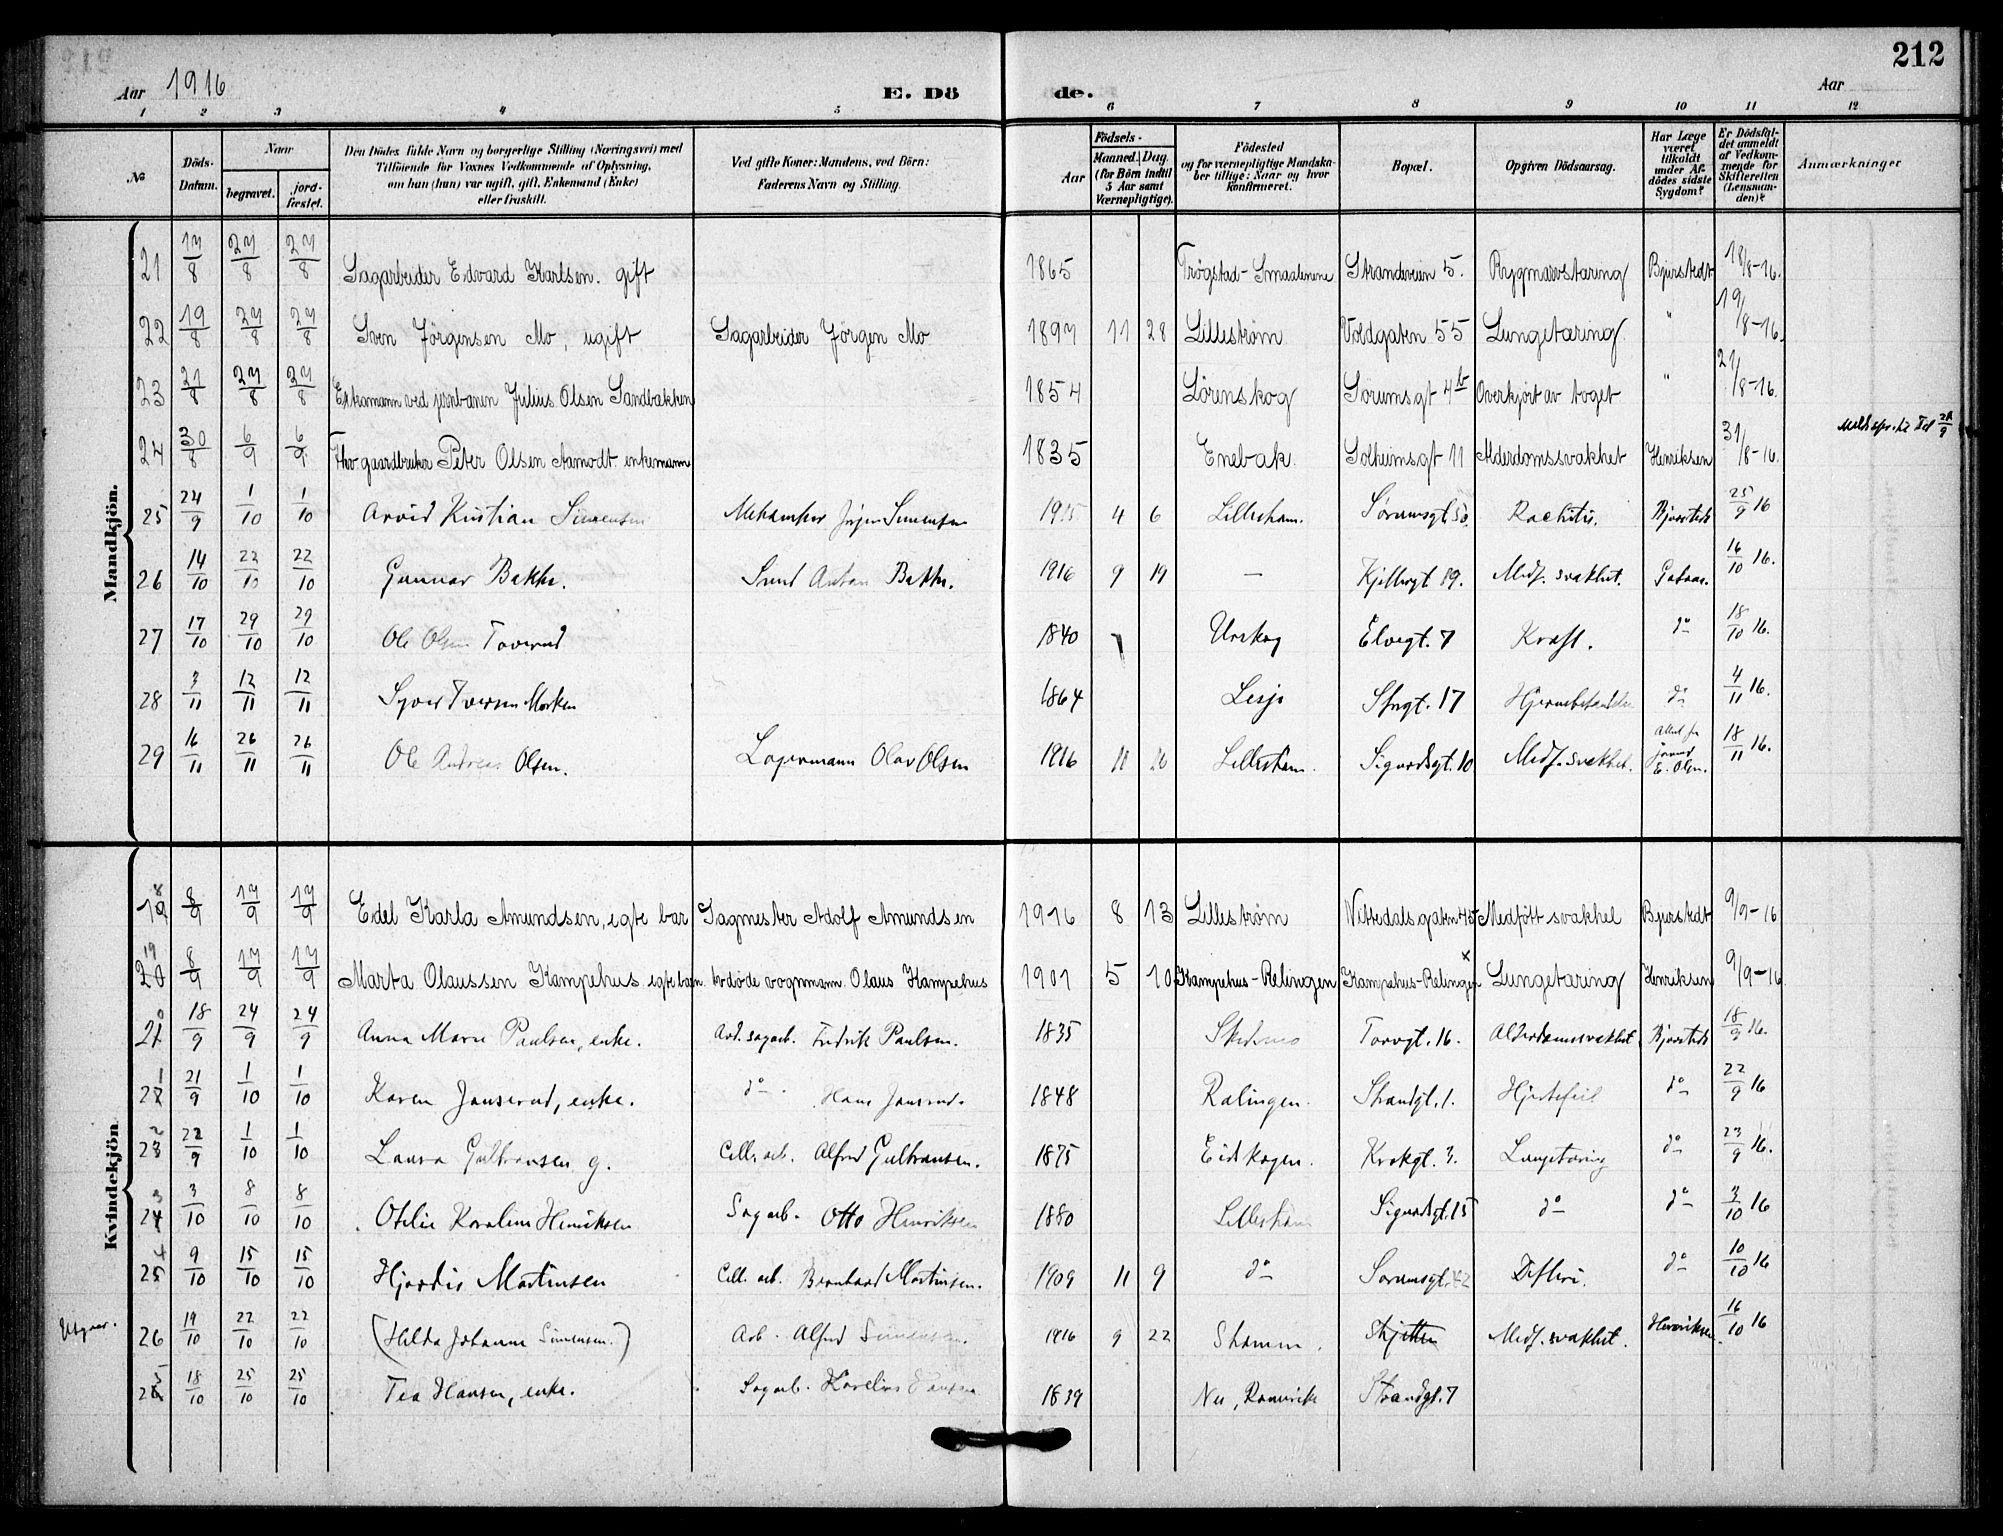 212
Aar 1916 E. Dö de. Aar
1 2 3 4 5 6 7 8 9 10 11 12
№ Döds-Datum. Naar begravet. jord-fæstet. Den Dödes fulde Navn og borgerlige Stilling (Næringsvei) med Tilföiende for Voxnes Vedkommende af Oplysning, om han (hun) var ugift, gift, Enkemand (Enke) eller fraskilt. Ved gifte Koner: Mandens, ved Börn: Faderens Navn og Stilling. Aar Födsels- Maaned. Dag. (for Börn indtil 5 Aar samt Værnepligtige). Födested og for værnepligtige Mandskaber tillige: Naar og hvor Konfirmeret. Bopæl. Opgiven Dödsaarsag. Har Læge været tilkaldt under Afdödes sidste Sygdom? Er Dödsfaldet anmeldt af Vedkommende for Skifteretten (Lensmanden)? Anmærkninger
Mandkjön.
21 17/8 27/8 27/8 Sagarbeider Edvard Karlsen. gift 1865 Trøgstad-Smaalenene Strandveien 5. Rygmarvstæring Bjerstedt 18/8-16.
22 19/8 27/8 27/8 Sven Jörgensen Mo, ugift Sagarbeider Jörgen Mo 1897 11 28 Lilleström Voldgaten 55 Lungetæring " 19/8-16.
23 21/8 27/8 27/8 Extramann ved jernbanen Julius Olsen Sandbakken 1854 Lörenskog Sorumsgt 4b Overkjört av toget " 21/8-16.
24 30/8 6/9 6/9 Fhv gaardbruker Peter Olsen Aamodt enkemann 1835 Enebak Solheimsgt 11 Alderdomssvakhet Henriksen 31/8-16.
25 24/9 1/10 1/10 Arvid Kristian Simensen Simensen 1915 4 6 Lillestrøm. Sørumsgt. Rachitis. Bjerstedt 25/9 16
26 14/10 22/10 22/10 Gunnar Bakke. Anton Bakke. 1916 9 19 — 19. Medf. svakhet. 16/10 16.
27 17/10 29/10 29/10 Ole Olsen 1840 Urskog Elvegt. 7 Kraft. do 18/10 16.
28 3/11 12/11 12/11 Iversen 1864 Lesja 17 do 4/11 16.
29 16/11 26/11 26/11 Ole Andreas Olsen. Lagermann Olav Olsen 1916 Lillestrøm. Sigurdsgt. 10 Medf. svakhet. E. Olsen. 18/11 16.
Kvindekjön.
18 8/9 17/9 17/9 Edel Karla Amundsen, egte bar Sagmester Adolf Amundsen 1916 8 13 Lilleström Nittedalsgaten 45 Medfött svakhet Bjerstedt 9/9-16
19 8/9 17/9 17/9 Marta Olaussen Kampehus egte barn. avdöde vognmann Olaus Kampehus 1901 5 10 Kampehus-Relingen Kampehus-Relingen × Lungetæring Henriksen 9/9-16
20 18/9 24/9 24/9 Anna Marie Paulsen, enke. Avd. sagarb. Fredrik Paulsen. 1835 Skedsmo Torvgt. 16. Alderdomssvakhet Bjerstedt 18/9 16.
21 21/9 1/10 1/10 Karen Janserud, enke. do Hans Janserud. 1848 Ralingen. Strandgt. 1. Hjertefeil do 22/9 16
22 22/9 1/10 1/10 Laura Gulbransen g. Cell. arb. Alfred Gulbransen. 1875 Eidskogen. Krokgt. 3. Lungetæring do 23/9 16.
23 3/10 8/10 8/10 Otilie Karoline Henriksen Sagarb. Otto Henriksen 1880 Lillestrøm Sigurdsgt. 15 do do 3/10 16
24 9/10 15/10 15/10 Hjørdis Martinsen Cell. arb. Bernhard Martinsen. 1909 11 9 do Sørumsgt. 42 Difteri. do 10/10 16
Utgaar. 26 19/10 22/10 22/10 (Hilda Johanne Simensen.) Arb. Alfred Simensen. 1916 9 22 Strømm. Skjetten Medf. svakhet. Henriksen 16/10 16
25 18/10 25/10 25/10 Tea Hansen, enke. Sagarb. Hansen 1839 Nes, Romerike Strandgt. 7